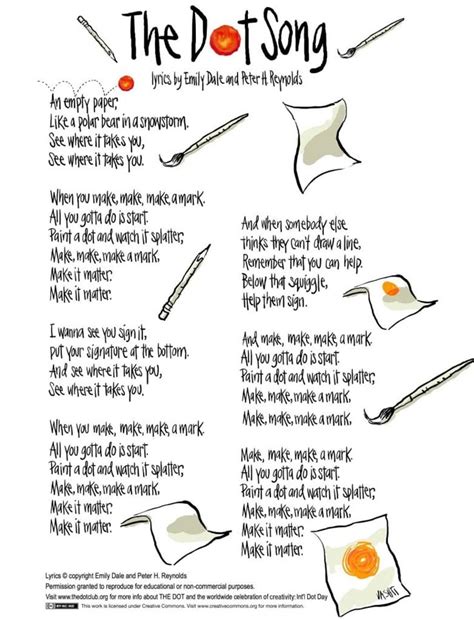 The Dot Song
lyrics by Emily Dale and Peter H. Reynolds
An empty paper,
Like a polar bear in a snowstorm.
See where it takes you,
See where it takes you.
When you make, make, make, a mark.
All you gotta do is start.
Paint a dot and watch it splatter,
Make, make, make a mark.
Make it matter.
Make it matter.
I wanna see you sign it,
Put your signature at the bottom.
And see where it takes you,
See where it takes you.
When you make, make, make, a mark.
All you gotta do is start.
Paint a dot and watch it splatter,
Make, make, make a mark,
Make it matter.
Make it matter.
And when somebody else
thinks they can't draw a line,
Remember that you can help.
Below that squiggle,
Help them sign.
And make, make, make, a mark.
All you gotta do is start.
Paint a dot and watch it splatter,
Make, make, make a mark,
Make, make, make, a mark.
All you gotta do is start.
Paint a dot and watch it splatter,
Make, make, make a mark,
Make it matter.
Make it matter.
Make it matter.
VASHTI
Lyrics © copyright Emily Dale and Peter H. Reynolds
Permission granted to reproduce for educational or non-commercial purposes.
Visit www.thedotclub.org for more info about THE DOT and the worldwide celebration of creativity: Int'l Dot Day
This work is licensed under Creative Commons. Visit www.creativecommons.org for more information.